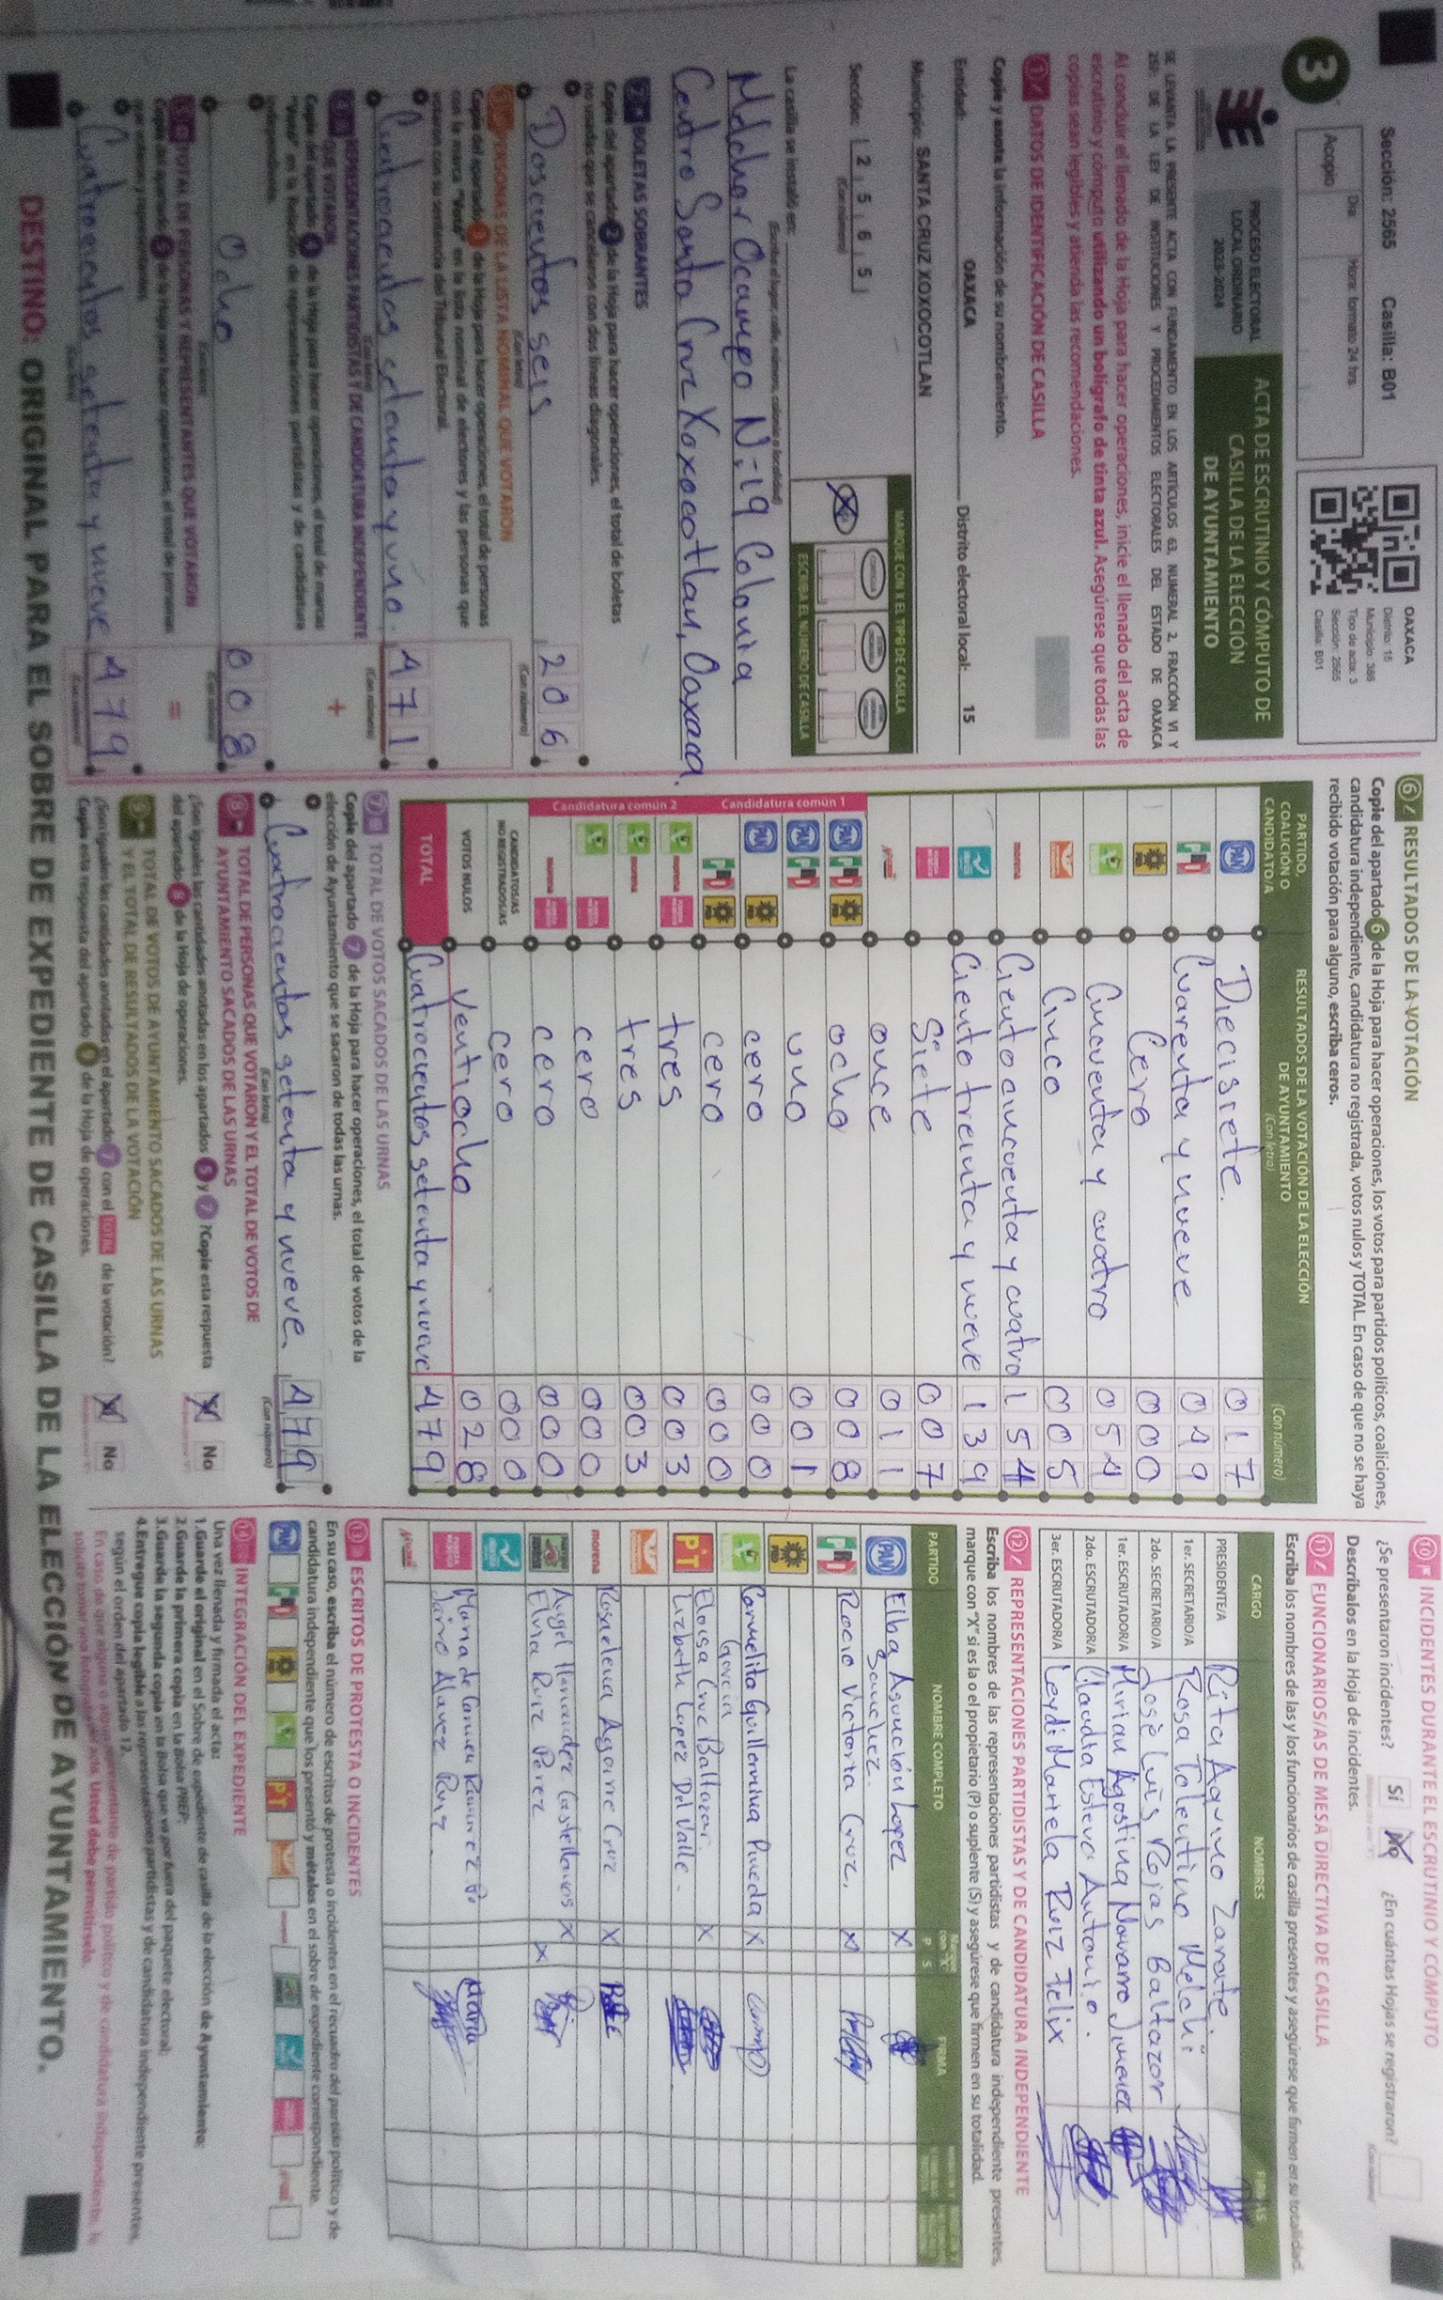 Sección: 2565 Casilla: B01
Día Hora: formato 24 hrs.
Acopio
3
OAXACA
Distrito: 15
Municipio: 385
Tipo de acta: 3
Sección: 2565
Casilla: B01
PROCESO ELECTORAL
LOCAL ORDINARIO
2023-2024
ACTA DE ESCRUTINIO Y CÓMPUTO DE
CASILLA DE LA ELECCIÓN
DE AYUNTAMIENTO
SE LEVANTA LA PRESENTE ACTA CON FUNDAMENTO EN LOS ARTÍCULOS 63, NUMERAL 2, FRACCIÓN VI Y
DE LA LEY DE INSTITUCIONES Y PROCEDIMIENTOS ELECTORALES DEL ESTADO DE OAXACA
Al concluir el llenado de la Hoja para hacer operaciones, inicie el llenado del acta de
escrutinio y cómputo utilizando un bolígrafo de tinta azul. Asegúrese que todas las
copias sean legibles y atienda las recomendaciones.
1 DATOS DE IDENTIFICACIÓN DE CASILLA
Copie y anote la información de su nombramiento.
Entidad: OAXACA Distrito electoral local: 15
Municipio: SANTA CRUZ XOXOCOTLAN
Sección: 2 5 6 5
(Con número)
MARQUE CON X EL TIPO DE CASILLA
ESCRIBA EL NÚMERO DE CASILLA
La casilla se instaló en:
(Escriba el lugar, calle, número, colonia o localidad)
Melchor Ocampo N.-19 Colonia
Centro Santa Cruz Xoxocotlan, Oaxaca.
2 BOLETAS SOBRANTES
Copie del apartado 2 de la Hoja para hacer operaciones, el total de boletas
no usadas que se cancelaron con dos líneas diagonales.
Doscientos seis 206
(Con letra) (Con número)
3 PERSONAS DE LA LISTA NOMINAL QUE VOTARON
Copie del apartado 3 de la Hoja para hacer operaciones, el total de personas
con la marca "Votó" en la lista nominal de electores y las personas que
votaron con su sentencia del Tribunal Electoral.
Cuatrocientos setenta y uno 471
(Con letra) (Con número)
4 REPRESENTACIONES PARTIDISTAS Y DE CANDIDATURA INDEPENDIENTE
QUE VOTARON +
Copie del apartado 4 de la Hoja para hacer operaciones, el total de marcas
"Votó" en la Relación de representaciones partidistas y de candidatura
independiente.
Ocho 008
(Con letra) (Con número)
5 TOTAL DE PERSONAS Y REPRESENTANTES QUE VOTARON =
Copie del apartado 5 de la Hoja para hacer operaciones, el total de personas
que votaron y representantes.
Cuatrocientos setenta y nueve 479
(Con letra) (Con número)
6 RESULTADOS DE LA VOTACIÓN
Copie del apartado 6 de la Hoja para hacer operaciones, los votos para partidos políticos, coaliciones,
candidatura independiente, candidatura no registrada, votos nulos y TOTAL. En caso de que no se haya
recibido votación para alguno, escriba ceros.
PARTIDO,
COALICIÓN O
CANDIDATO/A
RESULTADOS DE LA VOTACIÓN DE LA ELECCIÓN
DE AYUNTAMIENTO
(Con letra) (Con número)
PAN Diecisiete. 017
PRI Cuarenta y nueve 049
PRD Cero 000
Cincuenta y cuatro 054
Cinco 005
morena Ciento cincuenta y cuatro 154
Ciento treinta y nueve 139
Siete 007
once 011
Candidatura común 1
PAN PRI PRD ocho 008
PAN PRI uno 001
PAN PRD cero 000
PRI PRD cero 000
Candidatura común 2
morena tres 003
morena tres 003
cero 000
morena cero 000
CANDIDATOS/AS
NO REGISTRADOS/AS cero 000
VOTOS NULOS Ventiocho 028
TOTAL Cuatrocientos setenta y nueve 479
7 TOTAL DE VOTOS SACADOS DE LAS URNAS
Copie del apartado 7 de la Hoja para hacer operaciones, el total de votos de la
elección de Ayuntamiento que se sacaron de todas las urnas.
Cuatrocientos setenta y nueve. 479
(Con letra) (Con número)
8 TOTAL DE PERSONAS QUE VOTARON Y EL TOTAL DE VOTOS DE
AYUNTAMIENTO SACADOS DE LAS URNAS
¿Son iguales las cantidades anotadas en los apartados 5 y 7 ? Copie esta respuesta
del apartado 8 de la Hoja de operaciones. No
9 TOTAL DE VOTOS DE AYUNTAMIENTO SACADOS DE LAS URNAS
Y EL TOTAL DE RESULTADOS DE LA VOTACIÓN
¿Son iguales las cantidades anotadas en el apartado 7 con el TOTAL de la votación?
Copie esta respuesta del apartado 9 de la Hoja de operaciones. No
10 INCIDENTES DURANTE EL ESCRUTINIO Y CÓMPUTO
¿Se presentaron incidentes? Sí No ¿En cuántas Hojas se registraron?
Descríbalos en la Hoja de incidentes.
11 FUNCIONARIOS/AS DE MESA DIRECTIVA DE CASILLA
Escriba los nombres de las y los funcionarios de casilla presentes y asegúrese que firmen en su totalidad.
CARGO NOMBRES FIRMAS
PRESIDENTE/A Rita Aquino Zarate.
1er. SECRETARIO/A Rosa Tolentino Melchi
2do. SECRETARIO/A José Luis Rojas Baltazar
1er. ESCRUTADOR/A Mirian Agostina Navarro Jimenez
2do. ESCRUTADOR/A Claudia Esteva Antonio.
3er. ESCRUTADOR/A Leydi Mariela Ruiz Felix
12 REPRESENTACIONES PARTIDISTAS Y DE CANDIDATURA INDEPENDIENTE
Escriba los nombres de las representaciones partidistas y de candidatura independiente presentes,
marque con "X" si es la o el propietario (P) o suplente (S) y asegúrese que firmen en su totalidad.
PARTIDO NOMBRE COMPLETO P S FIRMA
PAN Elba Asunción Lopez X
Sanchez.
PRI Rocio Victoria Cruz. X
PRD
Carmelita Guillermina Pineda X
Garcia
PT Eloisa Cruz Baltazar. X
Lizbeth Lopez Del Valle.
morena Rosaelena Aguirre Cruz X
Angel Hernandez Castellanos X
Elvia Ruiz Perez X
Maria de Carmen Ramirez
Jairo Alavez Ruiz
13 ESCRITOS DE PROTESTA O INCIDENTES
En su caso, escriba el número de escritos de protesta o incidentes en el recuadro del partido político y de
candidatura independiente que los presentó y métalos en el sobre de expediente correspondiente.
PAN PRI PRD PT
14 INTEGRACIÓN DEL EXPEDIENTE
Una vez llenada y firmada el acta:
1.Guarde el original en el Sobre de expediente de casilla de la elección de Ayuntamiento;
2.Guarde la primera copia en la Bolsa PREP;
3.Guarde la segunda copia en la Bolsa que va por fuera del paquete electoral;
4.Entregue copia legible a las representaciones partidistas y de candidatura independiente presentes,
según el orden del apartado 12.
En caso de que alguna o algún representante de partido político y de candidatura independiente, le
solicite tomar una fotografía del acta. Usted debe permitírselo.
DESTINO: ORIGINAL PARA EL SOBRE DE EXPEDIENTE DE CASILLA DE LA ELECCIÓN DE AYUNTAMIENTO.